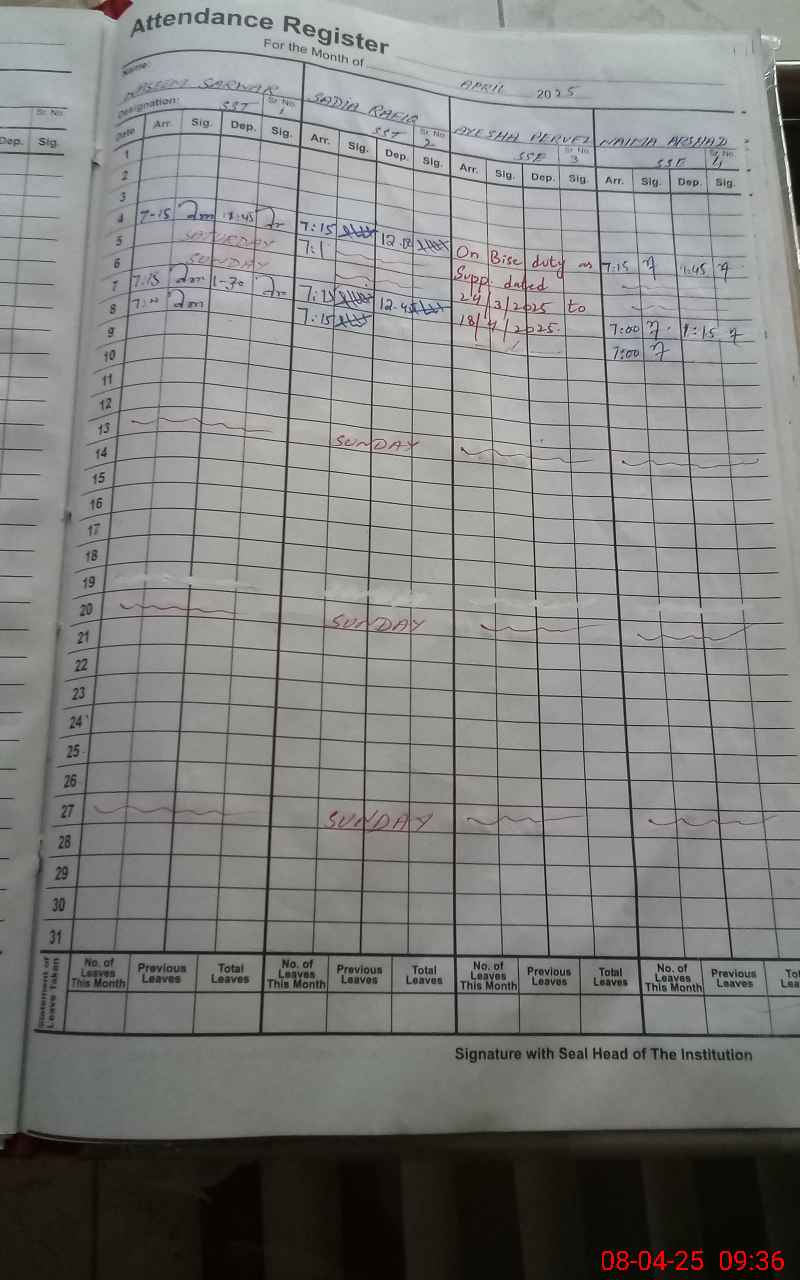 Attendance Register
For the Month of APRIL 2025
Name: NASEEM SARWAR SADIA RAFIQ AYESHA PERVEZ NAIMA ARSHAD
Designation: SST Sr. No. 1 SST Sr. No. 2 SSE Sr. No. 3 SSE Sr. No. 4
Dep. Sig. Sr. No.
Date Arr. Sig. Dep. Sig. Arr. Sig. Dep. Sig. Arr. Sig. Dep. Sig. Arr. Sig. Dep. Sig.
1
2
3
4 7-15 7:15 On Bise duty as 7:15 1:45
5 SATURDAY 7:1 Supp. dated
6 SUNDAY 24/3/2025 to
7 7:15 1-30 12.45 18/4/2025. 7:00 1:15
8 7:15 7:00
9
10
11
12
13 SUNDAY
14
15
16
17
18
19
20 SUNDAY
21
22
23
24
25
26
27 SUNDAY
28
29
30
31
Statement of Leave Taken
No. of Leaves This Month Previous Leaves Total Leaves No. of Leaves This Month Previous Leaves Total Leaves No. of Leaves This Month Previous Leaves Total Leaves No. of Leaves This Month Previous Leaves
Signature with Seal Head of The Institution
08-04-25 09:36